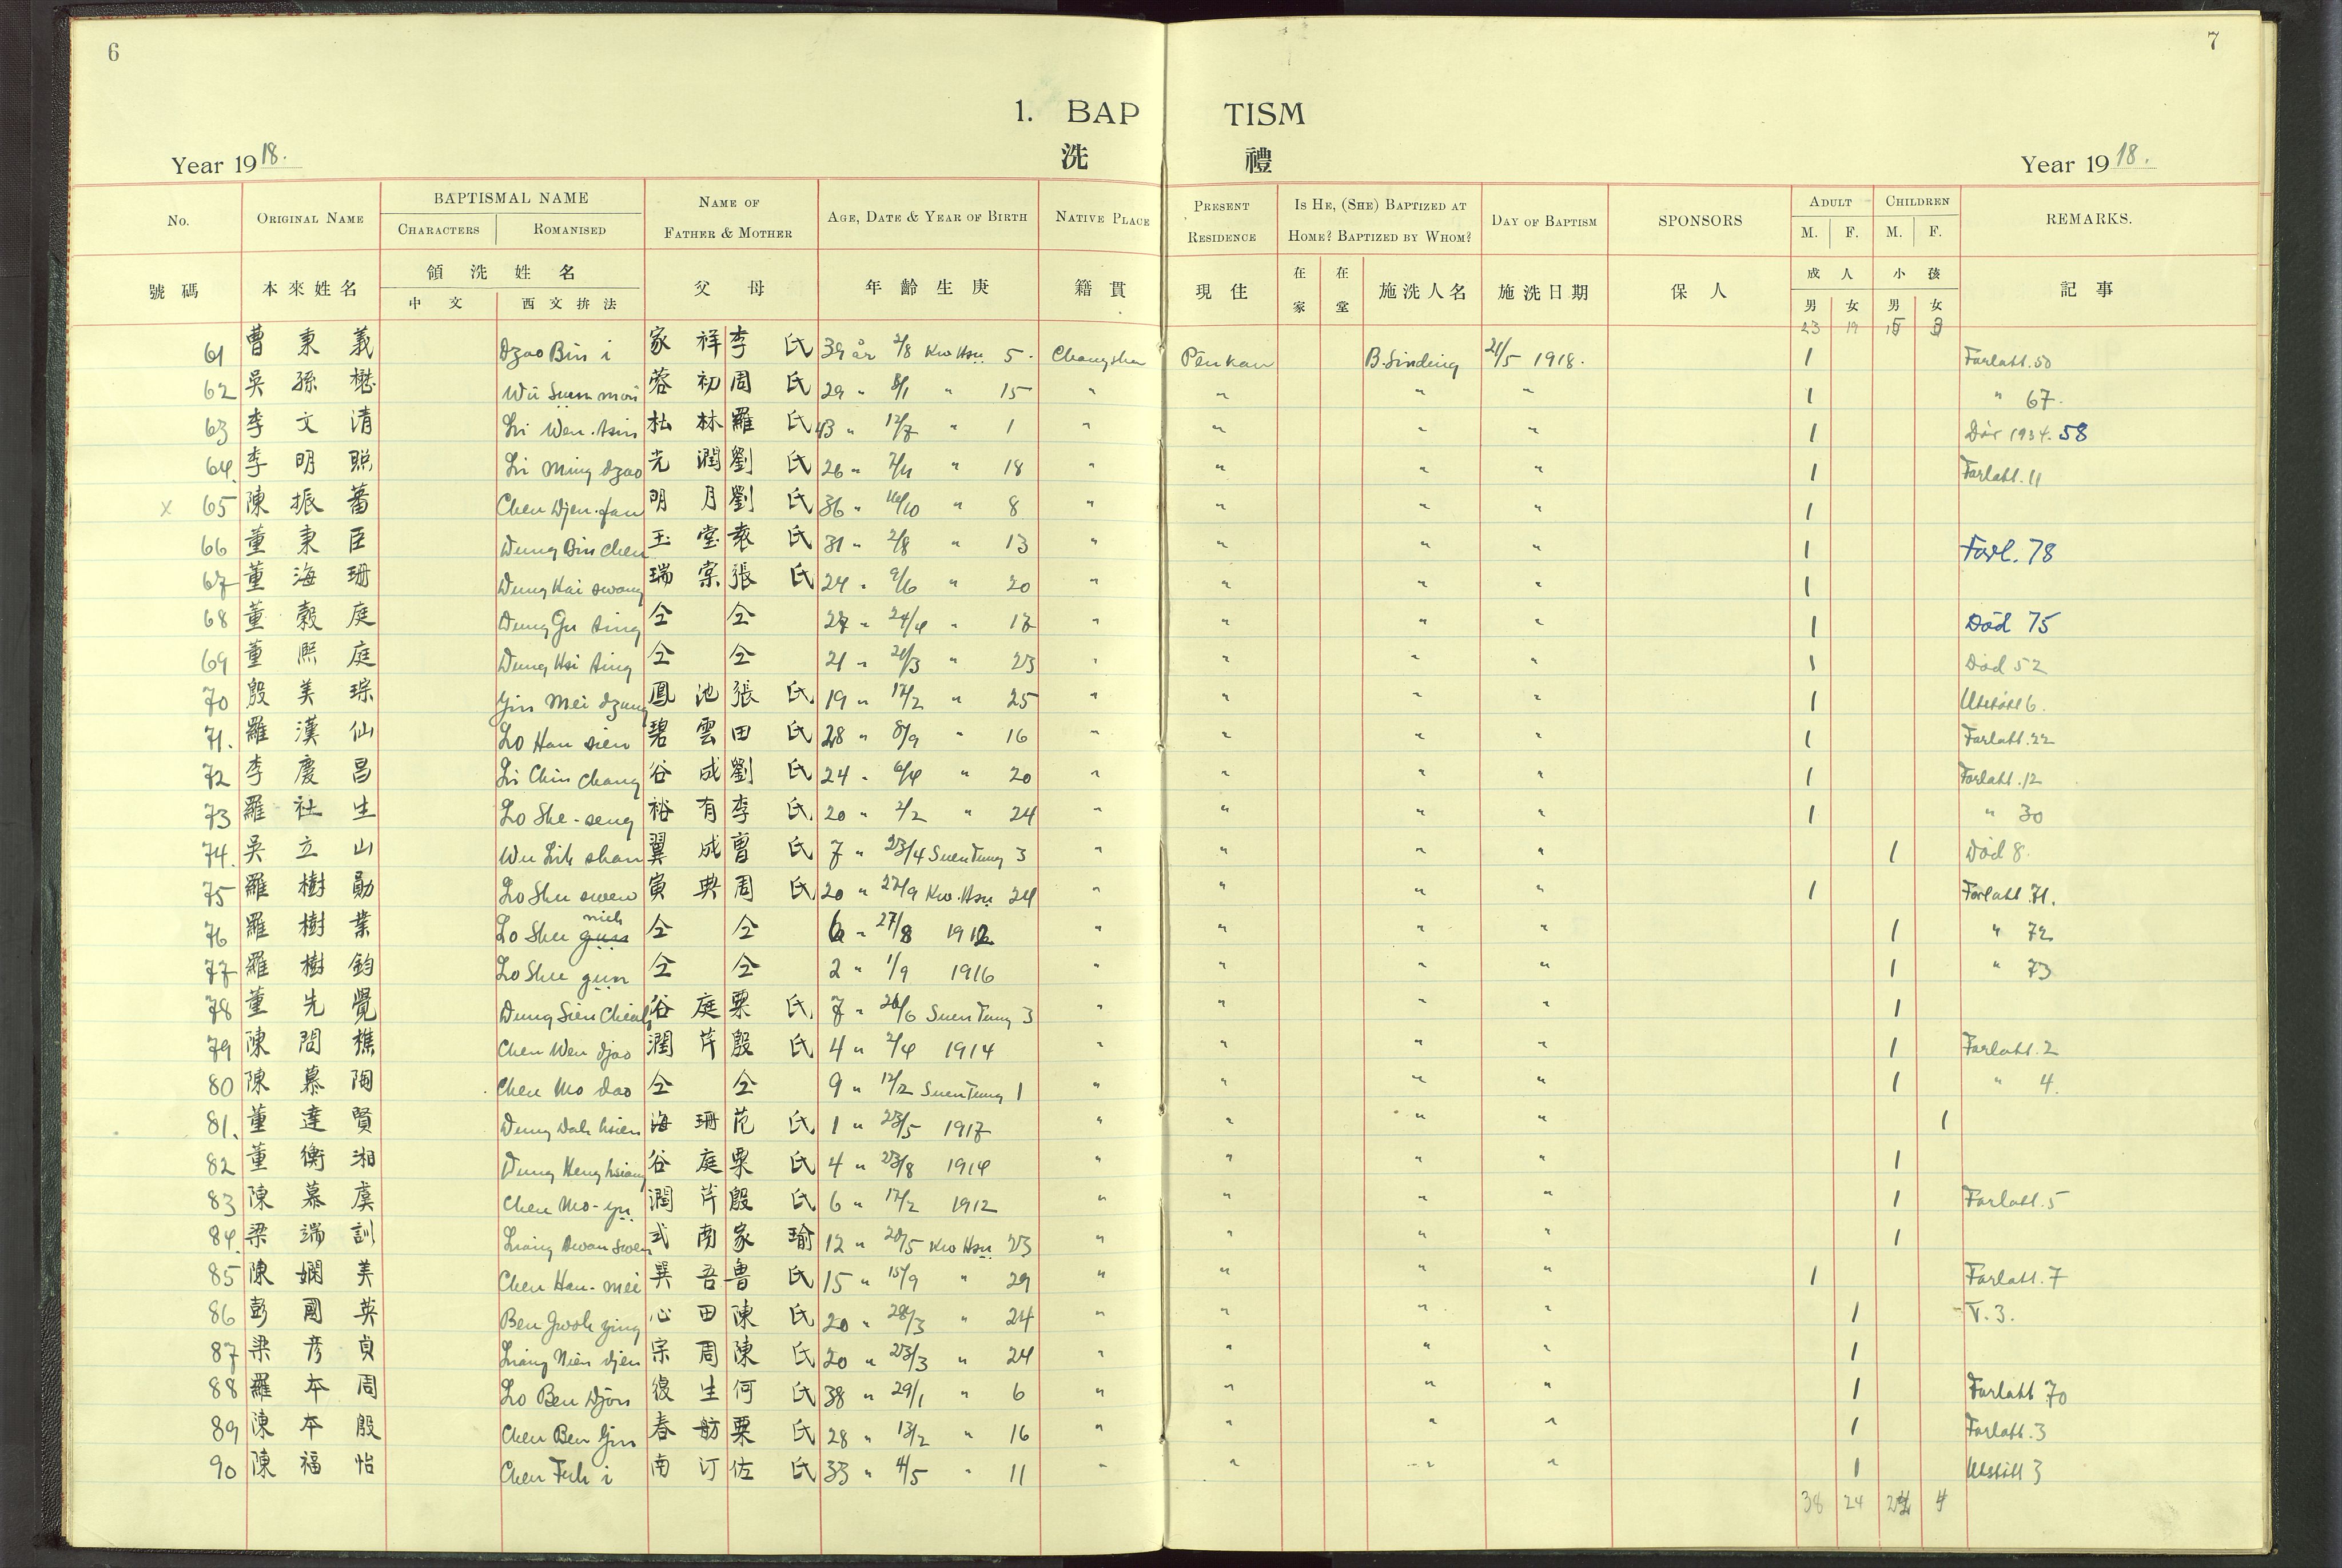 6
7
1. BAP TISM
洗 禮
Year 1918. Year 1918.
No. ORIGINAL NAME BAPTISMAL NAME NAME OF FATHER & MOTHER AGE, DATE & YEAR OF BIRTH NATIVE PLACE PRESENT RESIDENCE IS HE, (SHE) BAPTIZED AT HOME? BAPTIZED BY WHOM? DAY OF BAPTISM SPONSORS ADULT CHILDREN REMARKS.
CHARACTERS ROMANISED M. F. M. F.
號碼 本來姓名 領洗姓名 父 母 年齡生庚 籍貫 現住 在家 在堂 施洗人名 施洗日期 保人 成人 小孩 記事
中文 西文拚法 男 女 男 女
23 19
61 曹秉義 Dzao Bin i 家祥 李氏 39 år 2/8 Kwo Hsu 5. Changsha Penkan B. Sinding 21/5 1918. 1 Forlatt. 50
62 吳孫懋 Wu Suen mou 蓉初 周氏 29 " 8/1 " 15 " " " " 1 " 67.
63 李文清 Li Wen-tsin 杜林 羅氏 43 " 12/7 " 1 " " " " 1 Död 1934. 58
64. 李明照 Li Ming dzao 光潤 劉氏 26 " 2/11 " 18 " " " " 1 Forlatt. 11
x 65 陳振蕃 Chen Djen-fan 明月 劉氏 36 " 16/10 " 8 " " " " 1
66 董秉臣 Dung Bin chen 玉堂 袁氏 31 " 2/8 " 13 " " " " 1 Forl. 78
67 董海珊 Dung Hai swang 瑞棠 張氏 24 " 9/6 " 20 " " " " 1
68 董穀庭 Dung Gu ting 仝 仝 27 " 24/4 " 17 " " " " 1 Död 75
69 董熙庭 Dung Hsi ting 仝 仝 21 " 21/3 " 23 " " " " 1 Död 52
70 殷美琮 Yin Mei dzung 鳳池 張氏 19 " 17/2 " 25 " " " " 1 Utstött 6.
71. 羅漢仙 Lo Han sien 碧雲 田氏 28 " 8/9 " 16 " " " " 1 Forlatt. 22
72 李慶昌 Li Chin chang 谷成 劉氏 24 " 6/4 " 20 " " " " 1 Forlatt. 12
73 羅社生 Lo She-seng 裕有 李氏 20 " 2/2 " 24 " " " " 1 " 30
74. 吳立山 Wu Lih shan 翼成 曹氏 7 " 23/4 Suen Tung 3 " " " " 1 Död 8.
75 羅樹勛 Lo Shu swen 寅典 周氏 20 " 27/9 Kwo. Hsu 24 " " " " 1 Forlatt. 71.
76 羅樹業 Lo Shu nieh 仝 仝 6 " 27/8 1912 " " " " 1 " 72
77 羅樹鈞 Lo Shu gun 仝 仝 2 " 1/9 1916 " " " " 1 " 73
78 董先覺 Dung Sien Cheah 谷庭 栗氏 7 " 26/6 Suen Tung 3 " " " " 1
79 陳問樵 Chen Wen djao 潤芹 殷氏 4 " 2/4 1914 " " " " 1 Forlatt. 2
80 陳慕陶 Chen Mo dao 仝 仝 9 " 12/2 Suen Tung 1 " " " " 1 " 4.
81. 董達賢 Dung Dah hsien 海珊 范氏 1 " 23/5 1917 " " " " 1
82 董衡湘 Dung Heng hsiang 谷庭 栗氏 4 " 23/8 1914 " " " " 1
83 陳慕虞 Chen Mo-yu 潤芹 殷氏 6 " 17/2 1912 " " " " 1 Forlatt. 5
84. 梁端訓 Liang Dwan swen 式南 家瑜 12 " 20/5 Kwo Hsu 23 " " " " 1
85 陳嫻美 Chen Han-mei 巽吾 魯氏 15 " 15/9 " 29 " " " " 1 Forlatt. 7
86 彭國英 Ben Gwoh ying 心田 陳氏 20 " 28/3 " 24 " " " " 1 V. 3.
87 梁彦貞 Liang Nien djen 宗周 陳氏 20 " 23/3 " 24 " " " " 1
88 羅本周 Lo Ben Djou 復生 何氏 38 " 29/1 " 6 " " " " 1 Forlatt 70
89 陳本殷 Chen Ben Yin 春舫 栗氏 28 " 13/2 " 16 " " " " 1 Forlatt. 3
90 陳福怡 Chen Fuh i 南汀 佐氏 33 " 4/5 " 11 " " " " 1 Utstött 3
38 24 4